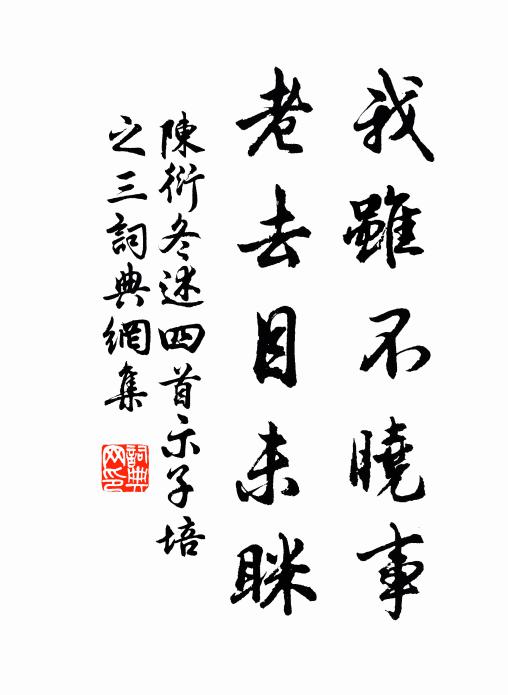 我雖不曉事
老去目未眯
陳衍冬述四首示子培
之三詞典網集
詞典网印